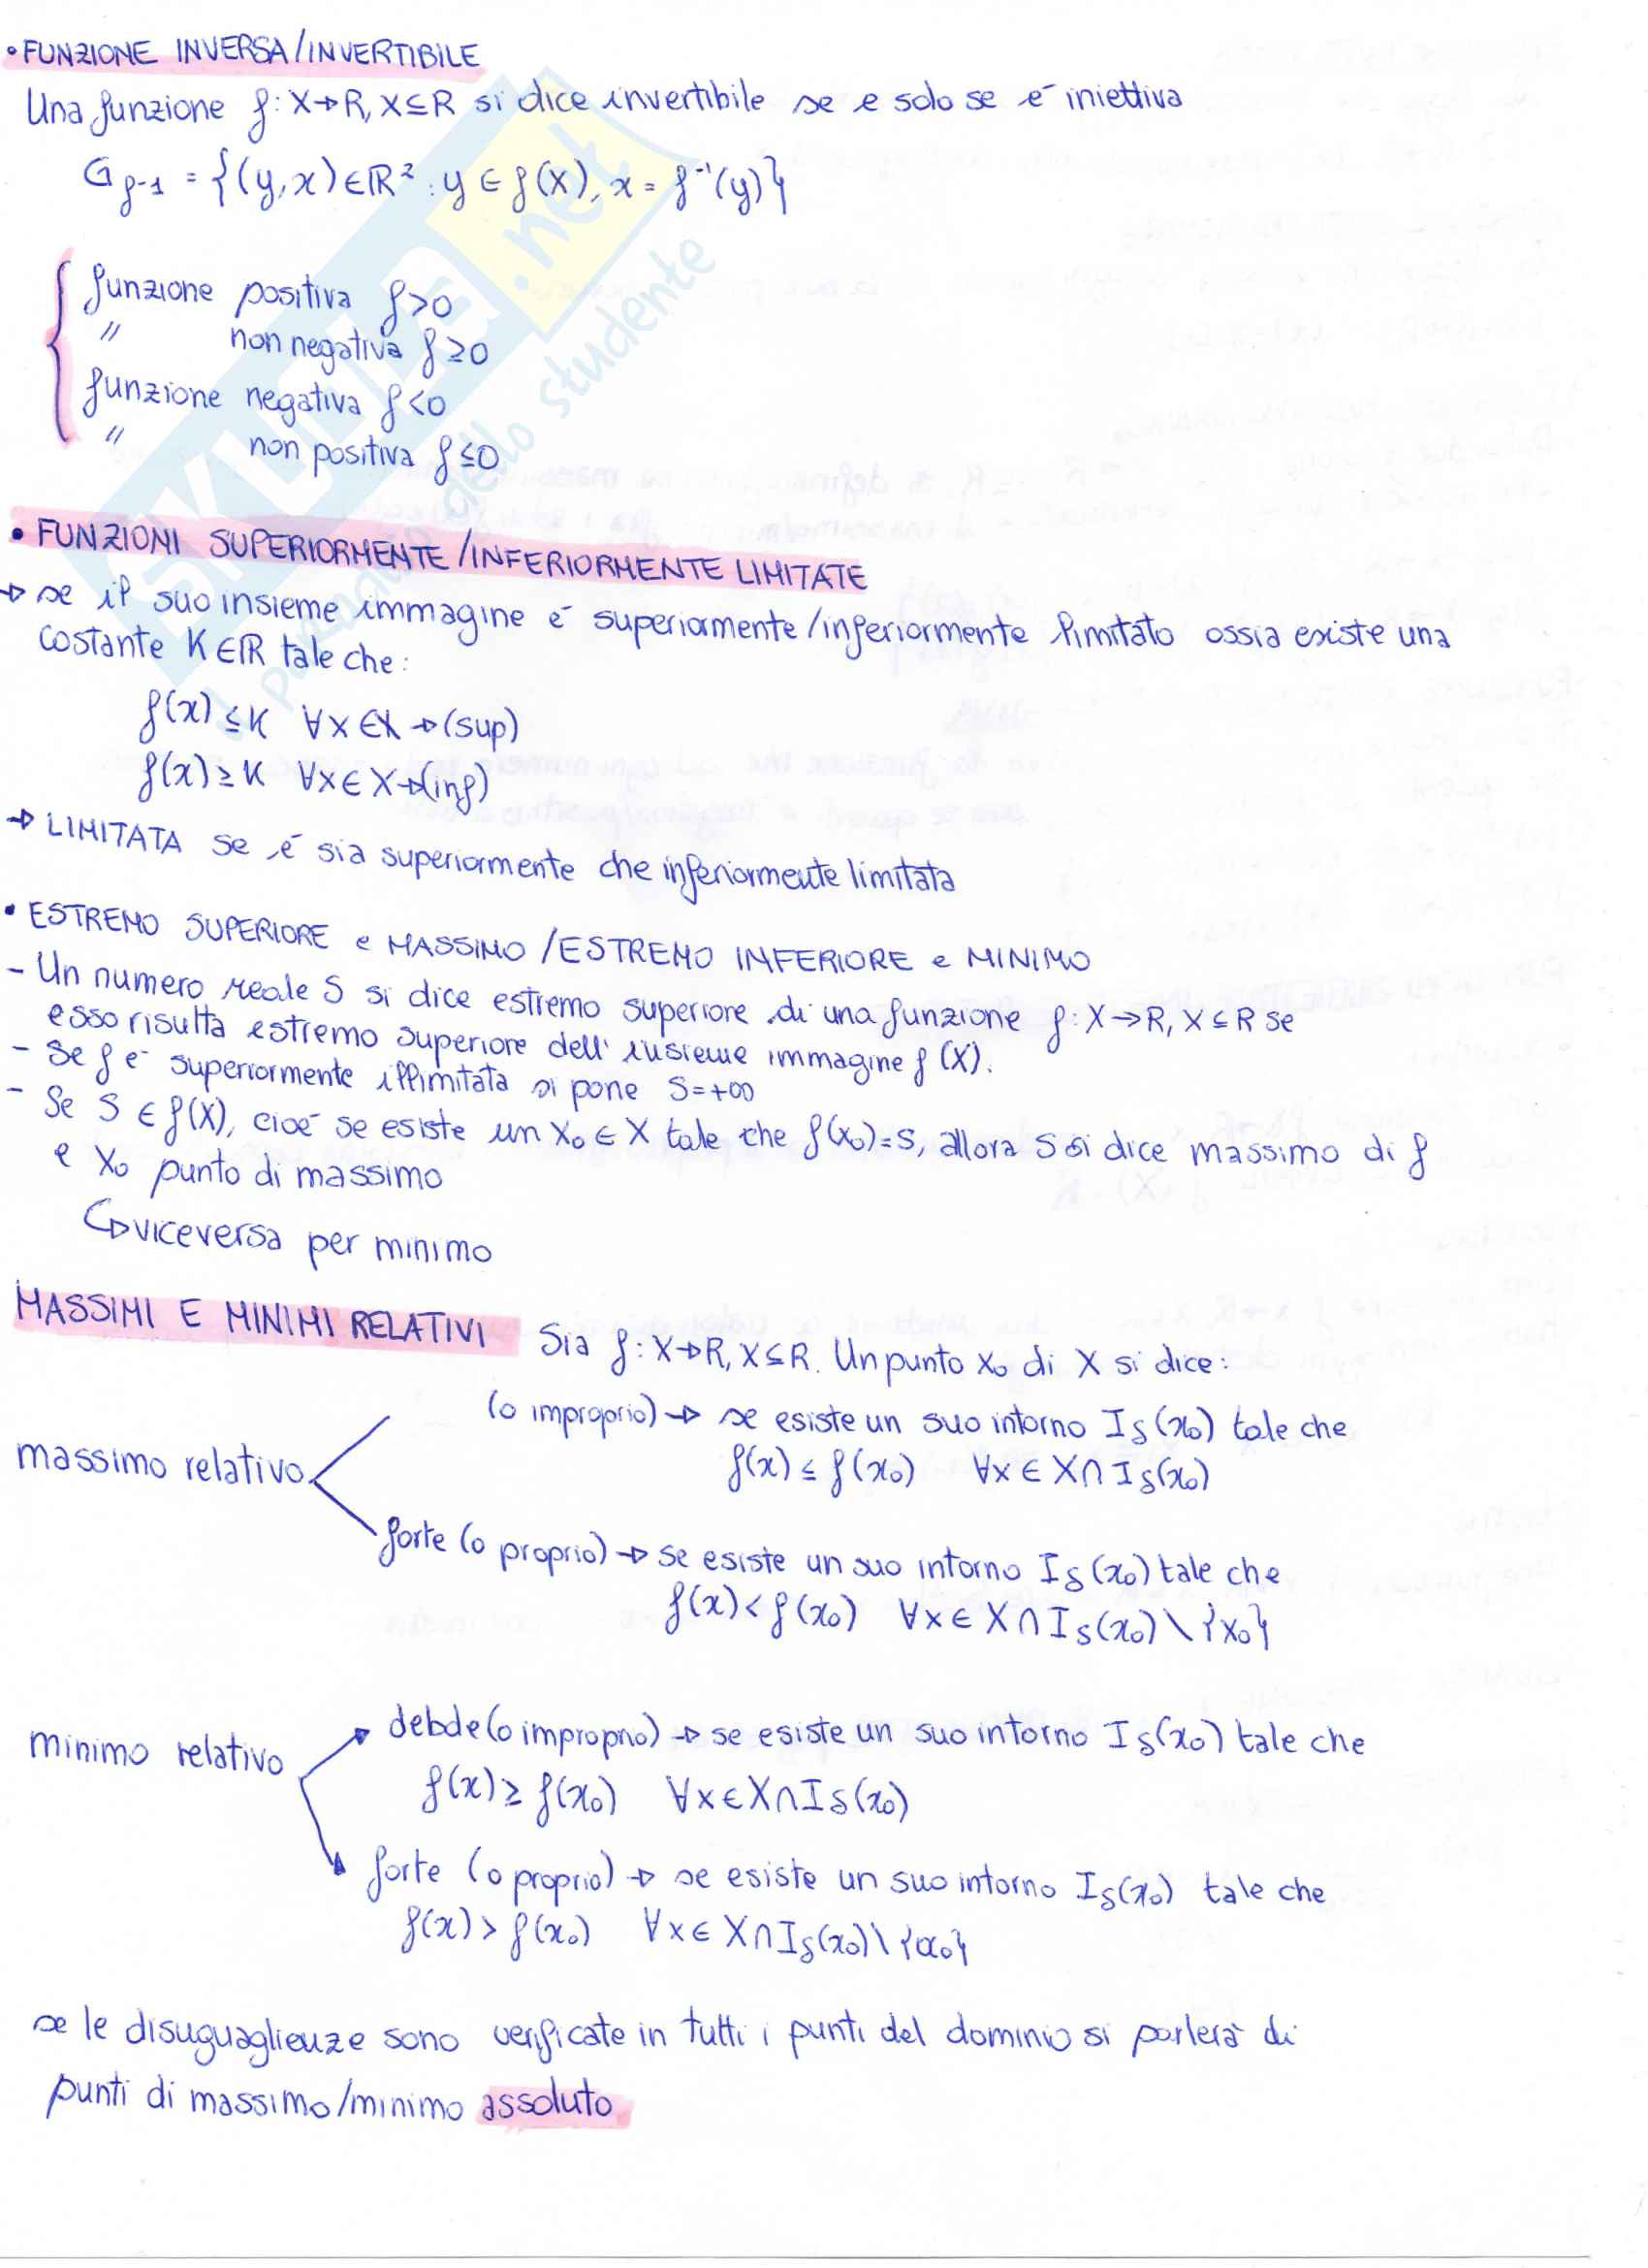 • FUNZIONE INVERSA/INVERTIBILE
Una funzione f: X→R, X⊆R si dice invertibile se e solo se è iniettiva
G f-1 = {(y,x)∈ℝ² : y ∈ f(X), x = f⁻¹(y)}
funzione positiva f>0
" non negativa f≥0
funzione negativa f<0
" non positiva f≤0
• FUNZIONI SUPERIORMENTE/INFERIORMENTE LIMITATE
→ se il suo insieme immagine è superiormente/inferiormente limitato ossia existe una
costante K∈ℝ tale che:
f(x) ≤ K ∀x∈X → (sup)
f(x) ≥ K ∀x∈X → (inf)
→ LIMITATA se è sia superiormente che inferiormente limitata
• ESTREMO SUPERIORE e MASSIMO /ESTREMO INFERIORE e MINIMO
- Un numero reale S si dice estremo superiore di una funzione f: X→R, X⊆R se
esso risulta estremo superiore dell' insieme immagine f(X).
- Se f è superiormente illimitata si pone S=+∞
- Se S ∈ f(X), cioè se esiste un x₀ ∈ X tale che f(x₀)=S, allora S si dice massimo di f
e x₀ punto di massimo
↳ viceversa per minimo
MASSIMI E MINIMI RELATIVI Sia f: X→R, X⊆R. Un punto x₀ di X si dice:
massimo relativo
(o improprio) → se esiste un suo intorno I δ(x₀) tale che
f(x) ≤ f(x₀) ∀x ∈ X∩I δ(x₀)
forte (o proprio) → se esiste un suo intorno I δ(x₀) tale che
f(x) < f(x₀) ∀x ∈ X∩I δ(x₀) \ {x₀}
minimo relativo
debole (o improprio) → se esiste un suo intorno I δ(x₀) tale che
f(x) ≥ f(x₀) ∀x∈X∩I δ(x₀)
forte (o proprio) → se esiste un suo intorno I δ(x₀) tale che
f(x) > f(x₀) ∀x∈ X∩I δ(x₀) \ {x₀}
se le disuguaglienze sono verificate in tutti i punti del dominio si parlerà di
punti di massimo/minimo assoluto
SKUOLA.net
il paradiso dello studente